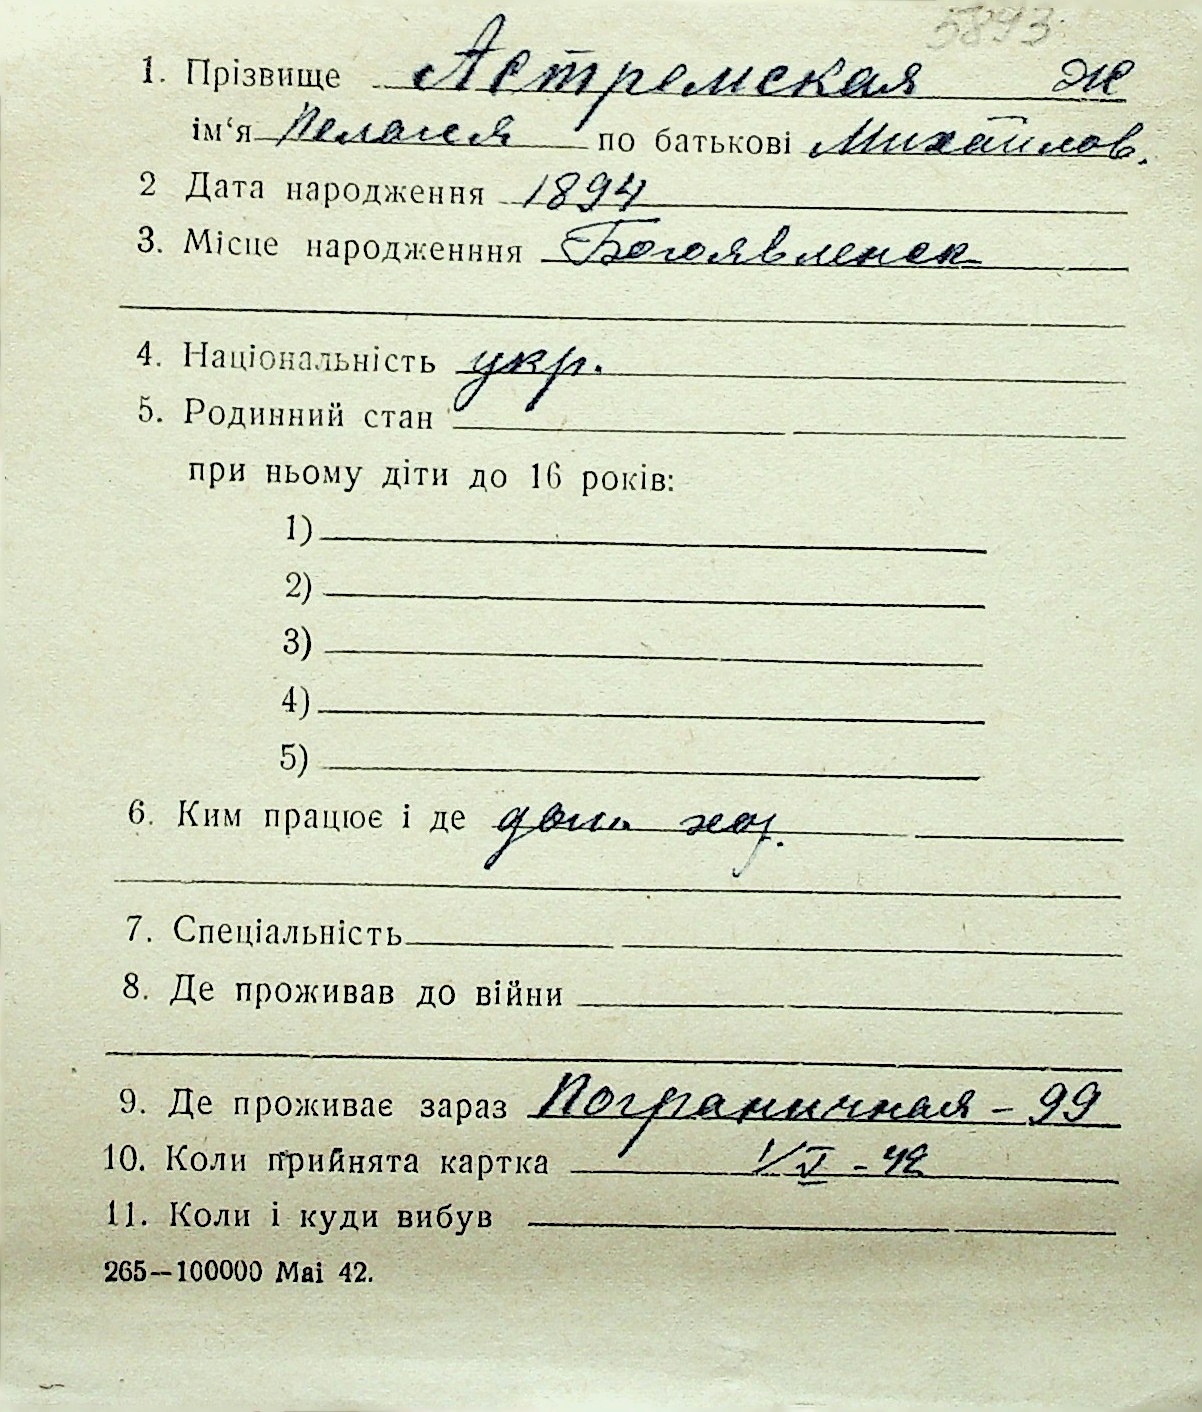 5893
1. Прізвище Астремская Ж
ім‘я Пелагея по батькові Михайлов.
2 Дата народження 1894
3. Місце народженння Богоявленск
4. Національність укр.
5. Родинний стан
при ньому діти до 16 років:
1)
2)
3)
4)
5)
6. Ким працює і де дом. хоз.
7. Спеціальність
8. Де проживав до війни
9. Де проживає зараз Пограничная - 99
10. Коли прийнята картка 1/V - 42
11. Коли і куди вибув
265—100000 Mai 42.